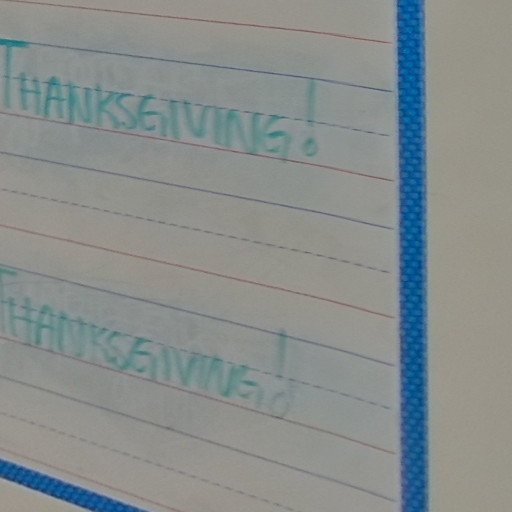 THANKSGIVING!
THANKSGIVING!